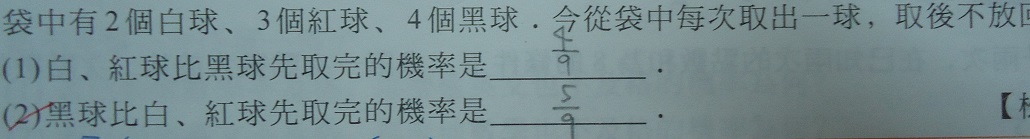 袋中有2個白球、3個紅球、4個黑球．今從袋中每次取出一球，取後不放
(1)白、紅球比黑球先取完的機率是 4/9 ．
(2)黑球比白、紅球先取完的機率是 5/9 ．【